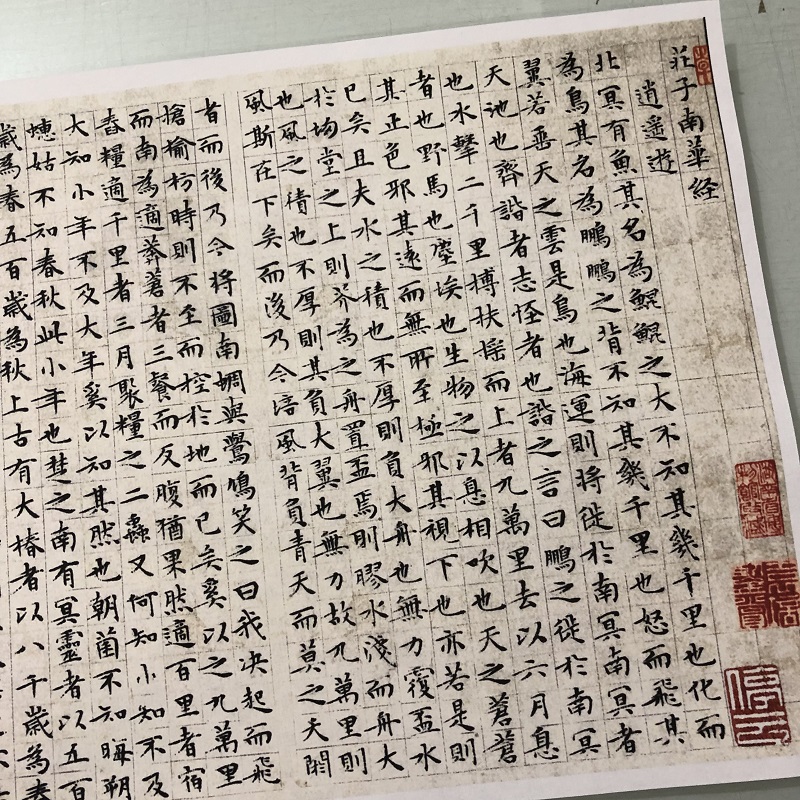 莊子南華経
逍遥遊
北冥有魚其名為鯤鯤之大不知其幾千里也化而
為鳥其名為鵬鵬之背不知其幾千里也怒而飛其
翼若垂天之雲是鳥也海運則將徙於南冥南冥者
天池也齊諧者志怪者也諧之言曰鵬之徙於南冥
也水擊二千里摶扶搖而上者九萬里去以六月息
者也野馬也塵埃也生物之以息相吹也天之蒼蒼
其正色邪其遠而無所至極邪其視下也亦若是則
已矣且夫水之積也不厚則負大舟也無力覆盃水
於坳堂之上則芥為之舟置盃焉則膠水淺而舟大
也風之積也不厚則其負大翼也無力故九萬里則
風斯在下矣而後乃今培風背負青天而莫之夭閼
者而後乃今將圖南蜩與鷽鳩笑之曰我決起而飛
搶榆枋時則不至而控於地而已矣奚以之九萬里
而南為適莽蒼者三餐而反腹猶果然適百里者宿
舂糧適千里者三月聚糧之二蟲又何知小知不及
大知小年不及大年奚以知其然也朝菌不知晦朔
蟪蛄不知春秋此小年也楚之南有冥靈者以五百
歲為春五百歲為秋上古有大椿者以八千歲為春